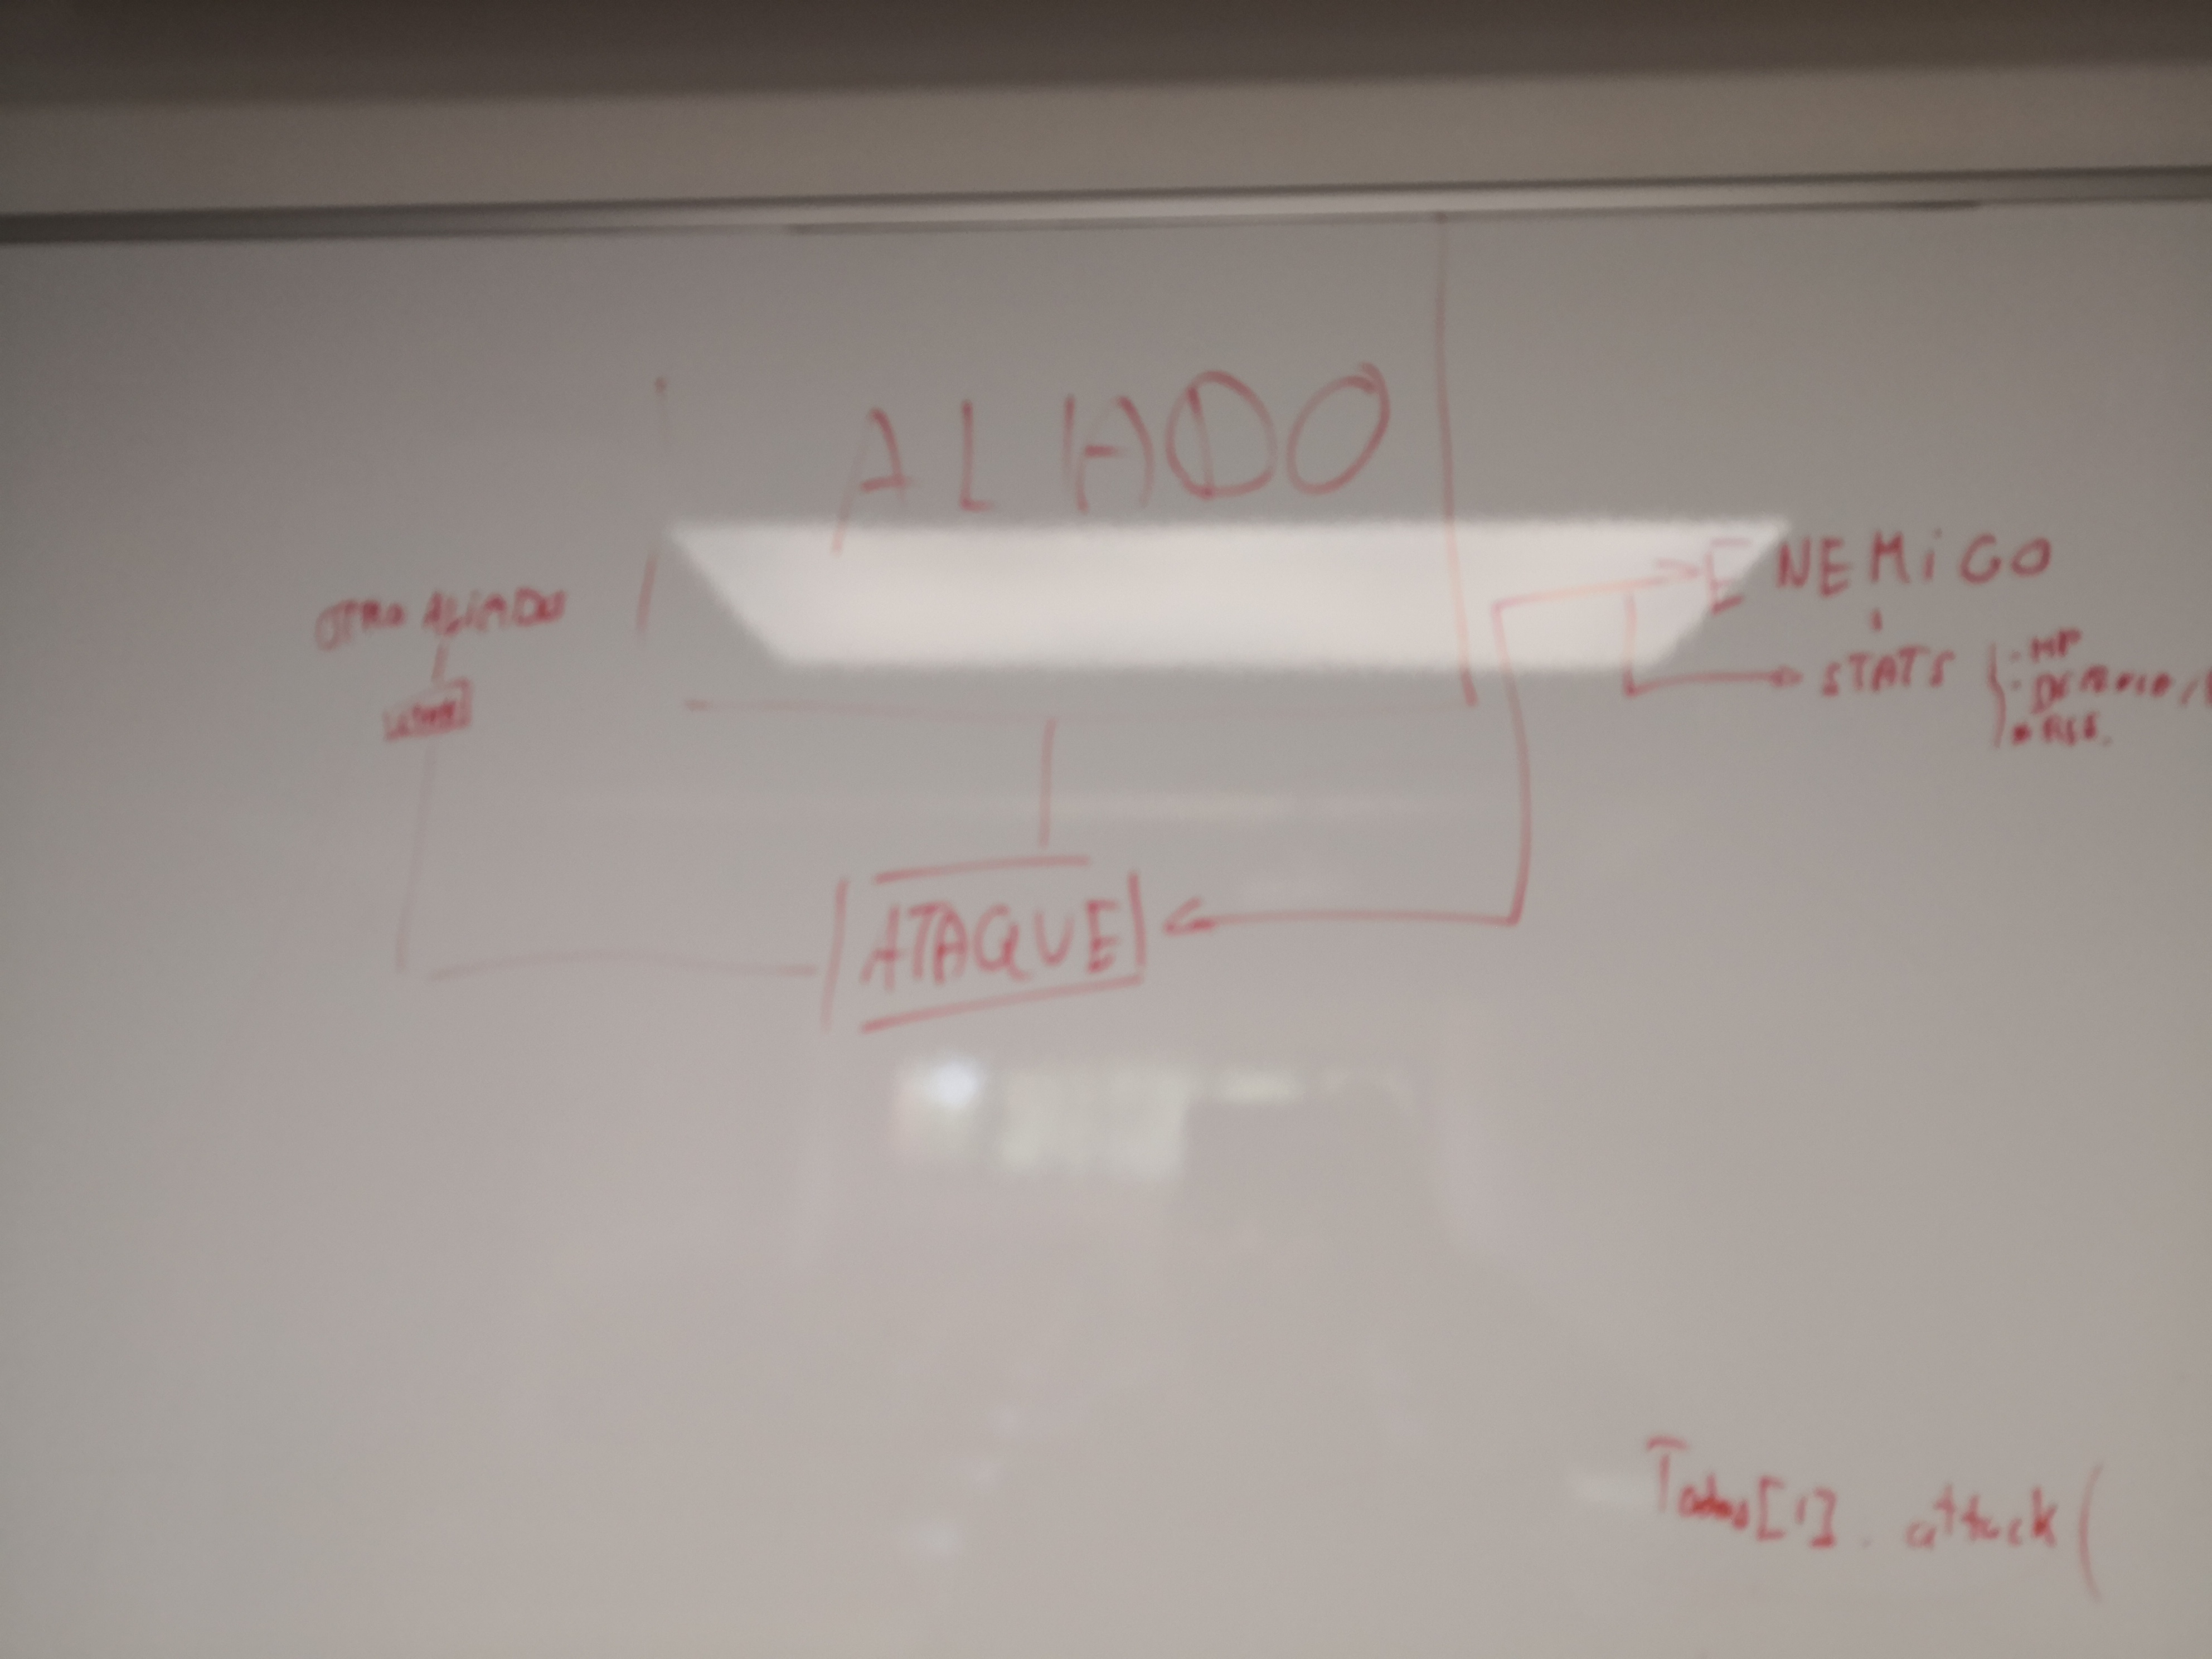 ALIADO
OTRO ALIADO
ENEMIGO
STATS
- HP
- DEFENSA
ATAQUE
Todos[1].attack(